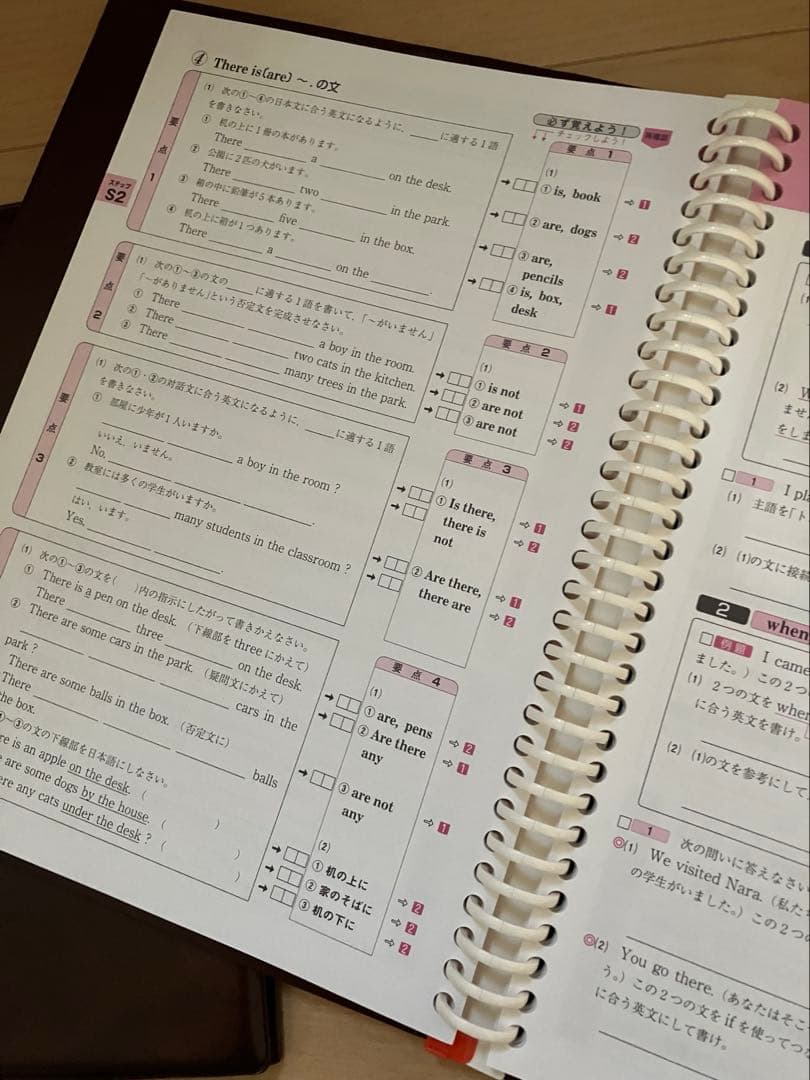 ④ There is(are) ～. の文
要点1
(1) 次の①～④の日本文に合う英文になるように、____に適する1語
を書きなさい。
① 机の上に1冊の本があります。
There ____ a ____ on the desk.
② 公園に2匹の犬がいます。
There ____ two ____ in the park.
③ 箱の中に鉛筆が5本あります。
There ____ five ____ in the box.
④ 机の上に箱が1つあります。
There ____ a ____ on the ____.
ステップ
S2
要点2
(1) 次の①～③の文の____に適する1語を書いて、「～がいません」
「～がありません」という否定文を完成させなさい。
① There ____ ____ a boy in the room.
② There ____ ____ two cats in the kitchen.
③ There ____ ____ many trees in the park.
要点3
(1) 次の①・②の対話文に合う英文になるように、____に適する1語
を書きなさい。
① 部屋に少年が1人いますか。
____ ____ a boy in the room ?
いいえ、いません。
No, ____ ____ ____.
② 教室には多くの学生がいますか。
____ ____ many students in the classroom ?
はい、います。
Yes, ____ ____.
(1) 次の①～③の文を( )内の指示にしたがって書きかえなさい。
① There is a pen on the desk. (下線部を three にかえて)
There ____ three ____ on the desk.
② There are some cars in the park. (疑問文にかえて)
____ ____ ____ cars in the
park ?
There are some balls in the box. (否定文に)
There ____ ____ ____ balls
the box.
①～③の文の下線部を日本語にしなさい。
is an apple on the desk. ( )
are some dogs by the house. ( )
any cats under the desk ? ( )
必ず覚えよう！
チェックしよう！
再確認
要点1
(1)
① is, book ⇨ 1
② are, dogs ⇨ 2
③ are, ⇨ 2
pencils
④ is, box, ⇨ 1
desk
要点2
(1)
① is not ⇨ 1
② are not ⇨ 2
③ are not ⇨ 2
要点3
(1)
① Is there, ⇨ 1
there is ⇨ 2
not
② Are there, ⇨ 1
there are ⇨ 2
要点4
(1)
① are, pens ⇨ 2
② Are there ⇨ 1
any
③ are not ⇨ 1
any
(2)
① 机の上に ⇨ 2
② 家のそばに ⇨ 2
③ 机の下に ⇨ 2
(2)
ませ
をしま
1 I pla
(1) 主語を「ト
(2) (1)の文に接続
2 when
例題 I came
ました。) この2つ
(1) 2つの文を when
に合う英文を書け。
(2) (1)の文を参考にして
1 次の問いに答えなさい
◎(1) We visited Nara. (私た
の学生がいました。) この2つの
◎(2) You go there. (あなたはそこ
う。) この2つの文を if を使ってつ
に合う英文にして書け。